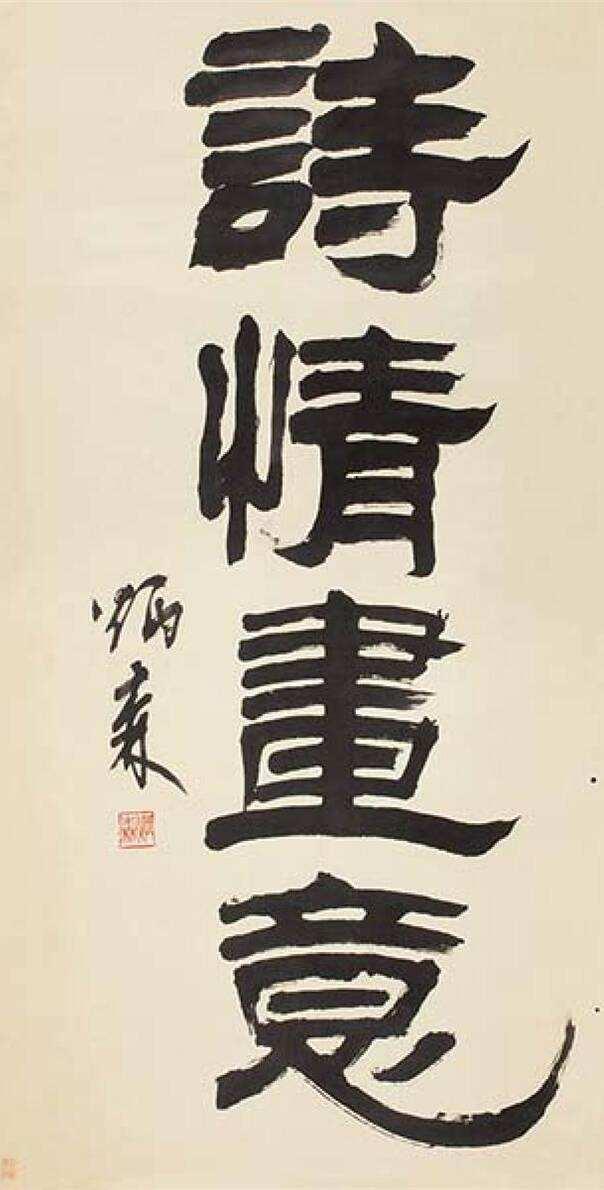 詩情畫意
炳森